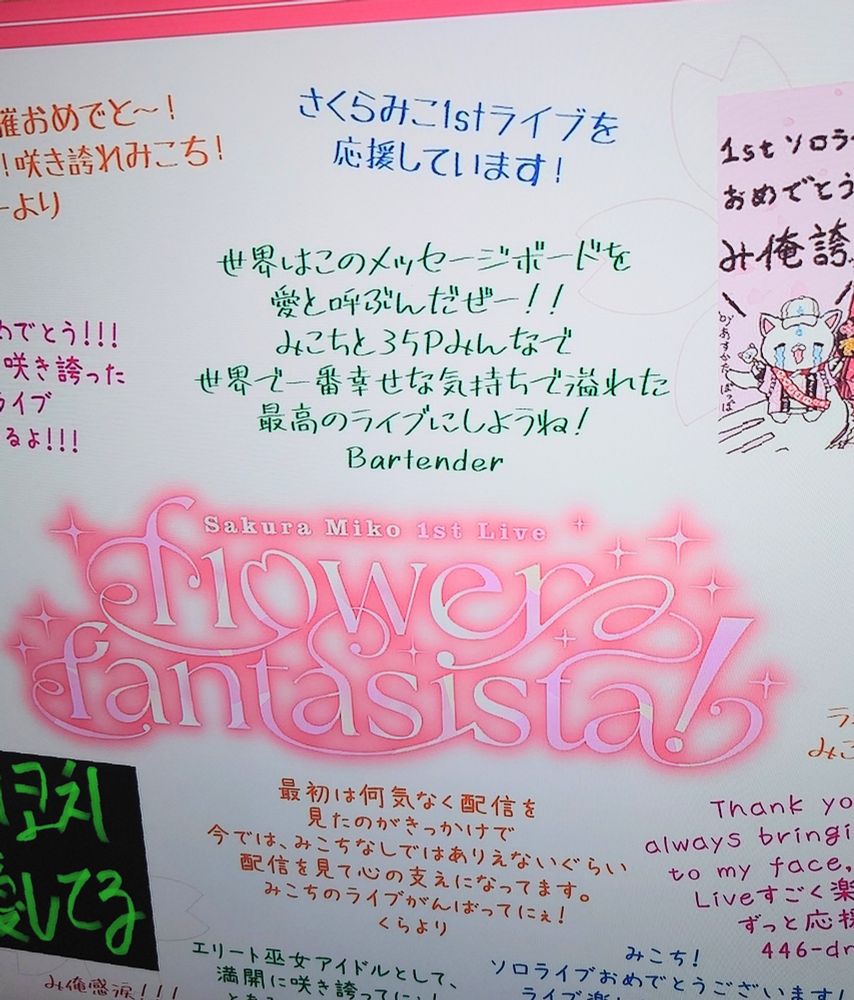 催おめでと〜！
！咲き誇れみこち！
ーより
さくらみこ1stライブを
応援しています！
1stソロラ
おめでとう
み俺誇
世界はこのメッセージボードを
愛と呼ぶんだぜー！！
みこちと35Pみんなで
世界で一番幸せな気持ちで溢れた
最高のライブにしようね！
Bartender
めでとう!!!
咲き誇った
ライブ
るよ!!!
Sakura Miko 1st Live
flower
fantasista!
最初は何気なく配信を
見たのがきっかけで
今では、みこちなしではありえないぐらい
配信を見て心の支えになってます。
みこちのライブがんばってにぇ！
くらより
コチ
愛してる
み俺感涙!!!
エリート巫女アイドルとして、
満開に咲き誇ってにぇ！
みこち！
ソロライブおめでとうございます！
ライブ楽し
ラ
みこ
Thank yo
always bringi
to my face,
Liveすごく楽
ずっと応援
446-dr